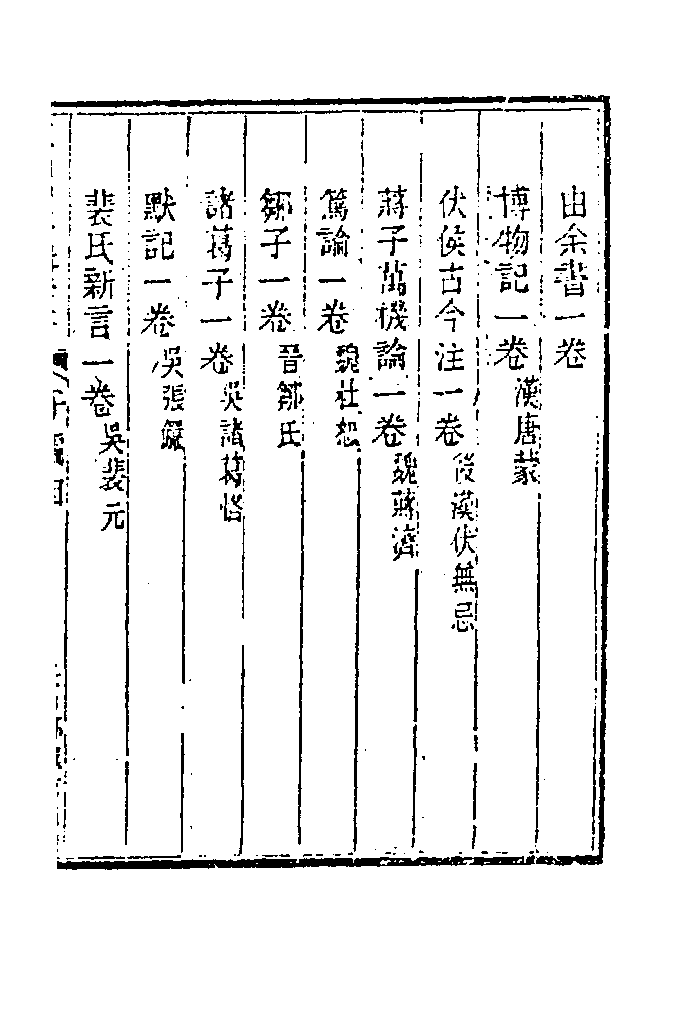 由余書一卷
博物記一卷 漢唐蒙
伏侯古今注一卷 後漢伏無忌
蔣子萬機論一卷 魏蔣濟
篤論一卷 魏杜恕
鄒子一卷 晉鄒氏
諸葛子一卷 吳諸葛恪
默記一卷 吳張儼
裴氏新言一卷 吳裴元